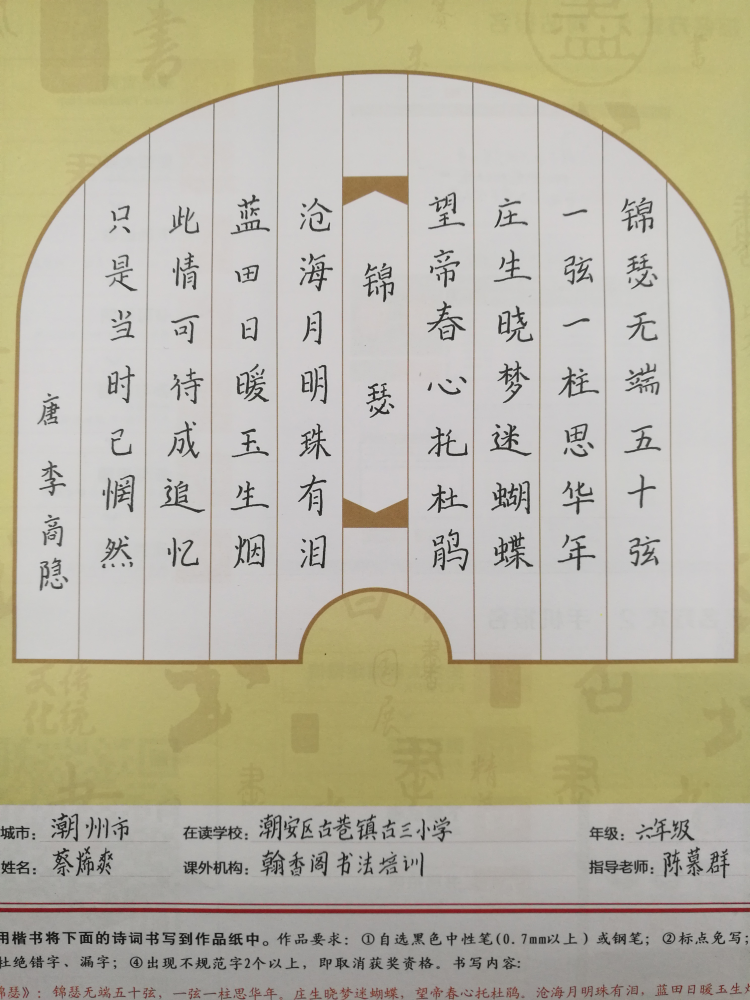 锦瑟无端五十弦
一弦一柱思华年
庄生晓梦迷蝴蝶
望帝春心托杜鹃
锦瑟
沧海月明珠有泪
蓝田日暖玉生烟
此情可待成追忆
只是当时已惘然
唐 李商隐
城市：潮州市 在读学校：潮安区古巷镇古三小学 年级：六年级
姓名：蔡烯爽 课外机构：翰香阁书法培训 指导老师：陈慕群
用楷书将下面的诗词书写到作品纸中。作品要求：①自选黑色中性笔(0.7mm以上)或钢笔；②标点免写；
杜绝错字、漏字；④出现不规范字2个以上，即取消获奖资格。书写内容：
锦瑟》：锦瑟无端五十弦，一弦一柱思华年。庄生晓梦迷蝴蝶，望帝春心托杜鹃。沧海月明珠有泪，蓝田日暖玉生